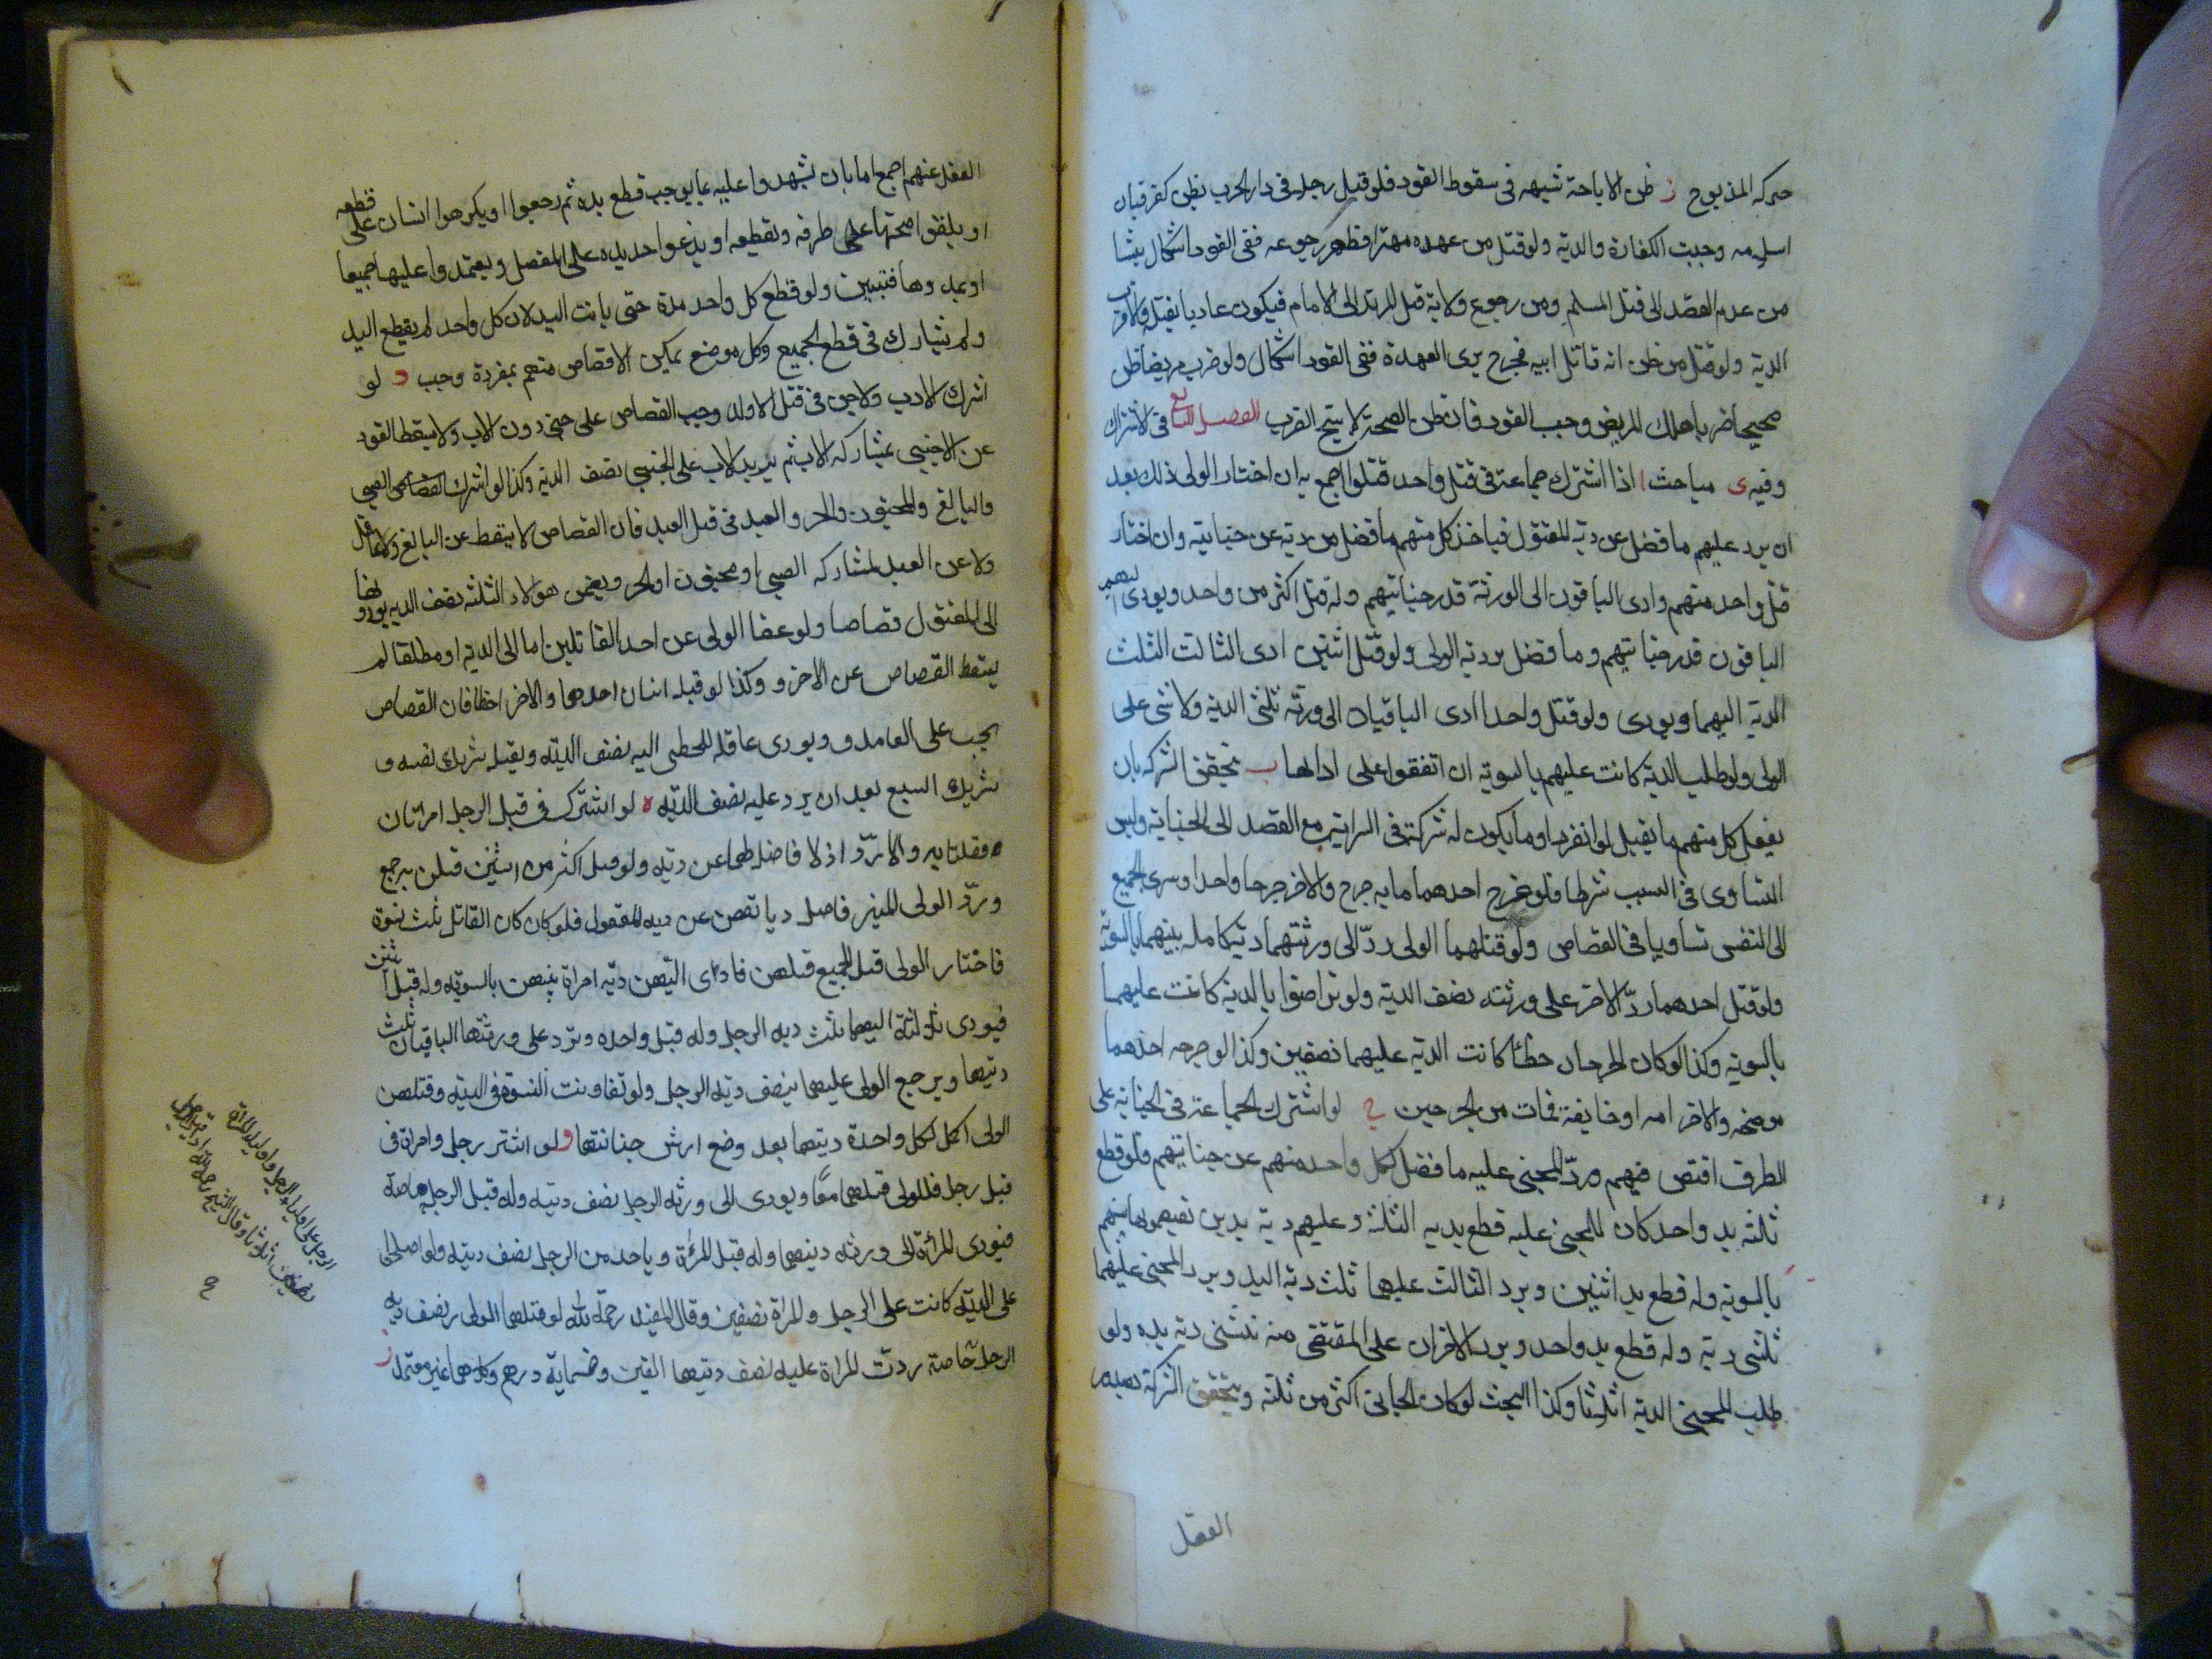 حركه المذبوح ز ظن الاباحة شبهه فى سقوط القود فلو قتل رجل فى دار الحرب بظن كفره فبان
اسلامه وجبت الكفارة والدية ولو قتل من عهده مرتدا فظهر رجوعه ففى القود اشكال ينشا
من عدم القصد الى قتل المسلم ومن رجوع ولاية قتل المرتد الى الامام فيكون عاديا بقتله والاقرب
الدية ولو قتل من ظن انه قاتل ابيه فخرج برى العهدة ففى القود اشكال ولو ضرب مريضا ظن
صحيحا ضربا يهلك المريض وجب القود فان ظن الصحة لا يبيح الضرب الفصل السابع فى الاشتراك
وفيه ى مباحث ا اذا اشترك جماعة فى قتل واحد قتلوا اجمع به ان اختار الولى ذلك بعد
ان يرد عليهم ما فضل عن دية المقتول فياخذ كل منهم ما فضل من ديته عن جنايته وان اختار
قتل واحد منهم وادى الباقون الى الورثة قدر جنايتهم وله قتل اكثر من واحد ويودى اليهم
الباقون قدر جنايتهم وما فضل يرديه الولى ولو قتل اثنين ادى الثالث الثلث
الدية اليهما ويودى ولو قتل واحدا ادى الباقيان الى ورثته ثلثى الدية ولا شى على
الولى ولو طلب الدية كانت عليهم بالسوية ان اتفقوا على ادائها ب تحقق الشركه بان
يفعل كل منهم ما يقتل لو انفرد او ما يكون له شركة فى السراية مع القصد الى الجناية وليس
التساوى فى السبب شرطا فلو جرح احدهما مايه جرح والاخر جرحا واحدا وسرى الجميع
الى النفس تساويا فى القصاص ولو قتلهما الولى ردّ الى ورثتهما دية كامله بينهما بالسوية
ولو قتل احدهما ردّ الاخر على ورثته نصف الدية ولو تراضوا بالدية كانت عليهما
بالسوية وكذا لو كان الجرحان خطأ كانت الدية عليهما نصفين وكذا لو جرحه احدهما
موضحه والاخر امه او جايفة فمات من الجرحين ج لو اشترك الجماعة فى الجناية على
الطرف اقتص فيهم وردّ المجنى عليه ما فضل لكل واحد منهم عن جنايتهم فلو قطع
ثلثه يد واحد كان للمجنى عليه قطع يديه الثلثة وعليهم دية يدين بينهم
بالسوية وله قطع يد اثنين ويرد الثالث عليهما ثلث دية اليد ويرد المجنى عليهما
ثلثى دية وله قطع يد واحد ويرد الاخران على المقتص منه ثلثى دية يده ولو
طلب المجنى الدية اثلاثا وكذا البحث لو كان الجانى اكثر من ثلثه ويتحقق الشركة بصدور
الفعل
الفعل عنهم اجمع اما بان يشهدوا عليه بما يوجب قطع يده ثم رجعوا او يكرهوا انسان على قطعه
او يلقوا صخرة على طرفه وتقطعه او يضعوا حديده على المفصل ويعتمدوا عليها جميعا
او يمدوها فتبين ولو قطع كل واحد مدة حتى بانت اليد لان كل واحد لم يقطع اليد
ولم يشارك فى قطع الجميع وكل موضع يمكن الاقصاص منهم بمفرده وجب د لو
اشترك الاب والاجنبى فى قتل الولد وجب القصاص على دون الاب ولا يسقط القود
عن الاجنبى بمشاركه الاب ثم يرد الاب على الجنبى نصف الدية وكذا لو اشترك الصبى
والبالغ والمجنون والحر والعبد فى قتل العبد فان القصاص لا يسقط عن البالغ والعاقل
ولا عن العبد لمشاركه الصبى او مجنون او الحر ويغرم هولاء الثلثه نصف الديه يودونها
الى المقتول قصاصا ولو عفا الولى عن احد القاتلين اما الى الدية او مطلقا لم
يسقط القصاص عن الاخر وكذا لو قتله اثنان احدهما والاخر خطا فان القصاص
يجب على العامد ويودى عاقله المخطى اليه نصف الدية ويقتل شريك نفسه و
شريك السبع بعد ان يرد عليه نصف الدية ه لو اشترك فى قتل الرجل امراتان
قتلتا به ولا ردّ اذ لا فاضل لهما عن ديته ولو قتل اكثر من اثنين قتلن به جمع
وردّ الولى اليهن فاضل دياتهن عن ديه المقتول فلو كان القاتل ثلث نسوة
فاختار الولى قتل الجميع قتلهن فادى اليهن ديه امراة بينهن بالسوية وله قتل اثنين
فيودى الثالثة اليهما ثلث ديه الرجل وله قتل واحده وترد على ورثتها الباقيتان ثلث
ديتها ويرجع الولى عليهما بنصف دية الرجل ولو تفاوتت النسوة فى الدية وقتلهن
الولى اكمل لكل واحدة ديتها بعد وضع ارش جنايتها و لو اشترك رجل وامراة فى
قتل رجل فللولى قتلهما معا ويودى الى ورثه الرجل نصف ديته وله قتل الرجل خاصة
فيودى المرأة الى ورثته ديتها وله قتل المرأة وياخذ من الرجل نصف ديته ولو اصطلحا
على الدية كانت على الرجل والمراة نصفين وقال المفيد رحمه الله لو قتلهما الولى نصف دية
الرجل خاصة ردت المراة عليه نصف ديتها الفين وخمسمايه درهم وكلاهما غير معتمد ز
الرجل على اولياء الرجل واولياء المراة